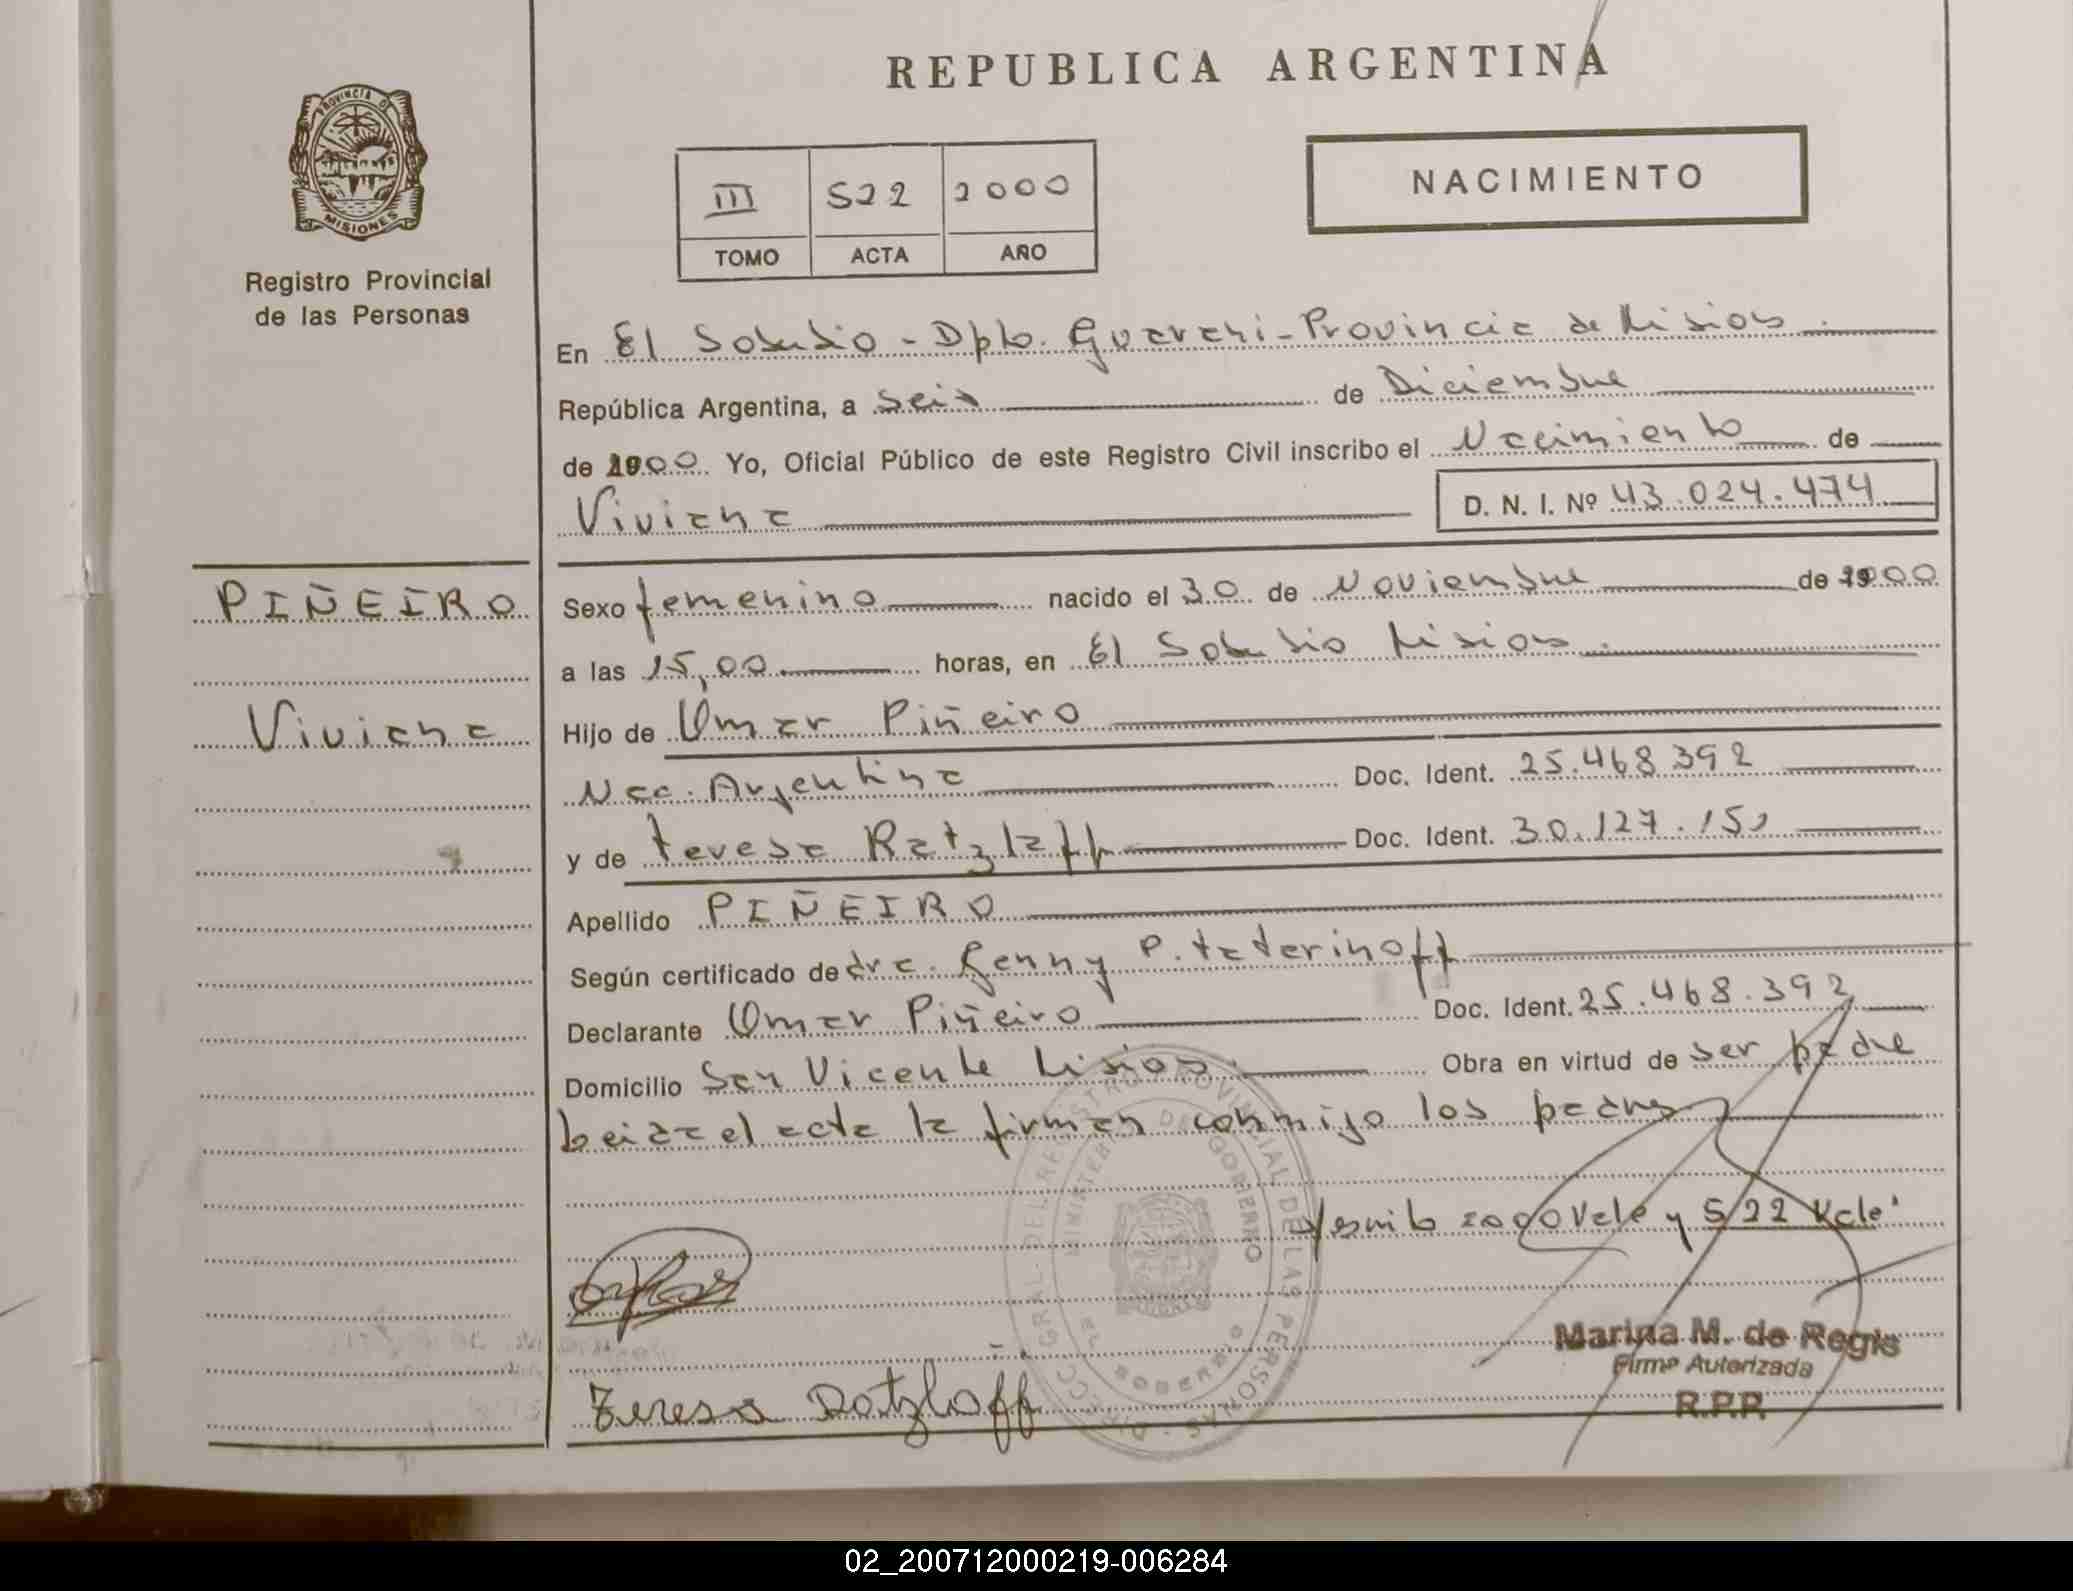 REPUBLICA ARGENTINA
PROVINCIA DE
MISIONES
Registro Provincial
de las Personas
III 522 2000
TOMO ACTA AÑO
NACIMIENTO
En El Soberbio - Dpto. Guarani - Provincia de Misiones.
República Argentina, a seis de Diciembre
de 2000 Yo, Oficial Público de este Registro Civil inscribo el Nacimiento de
Viviana D. N. I. Nº 43.024.474
PIÑEIRO
Viviana
Sexo femenino nacido el 30 de Noviembre de 2000
a las 15,00 horas, en El Soberbio Misiones.
Hijo de Omar Piñeiro
Nac. Argentina Doc. Ident. 25.468.392
y de Teresa Ratzlaff Doc. Ident. 30.127.151
Apellido PIÑEIRO
Según certificado de dra. Genny P. Tatarinoff
Declarante Omar Piñeiro Doc. Ident. 25.468.392
Domicilio San Vicente Misiones. Obra en virtud de ser padre
leida el acta la firman conmigo los padres
2000 Vale y 522 Vale
DIRECC. GRAL. DEL REGISTRO PROVINCIAL DE LAS PERSONAS
MINISTERIO DE GOBIERNO
EL SOBERBIO
Teresa Ratzlaff
Marina M. de Regis
Firma Autorizada
R.P.P.
02_200712000219-006284